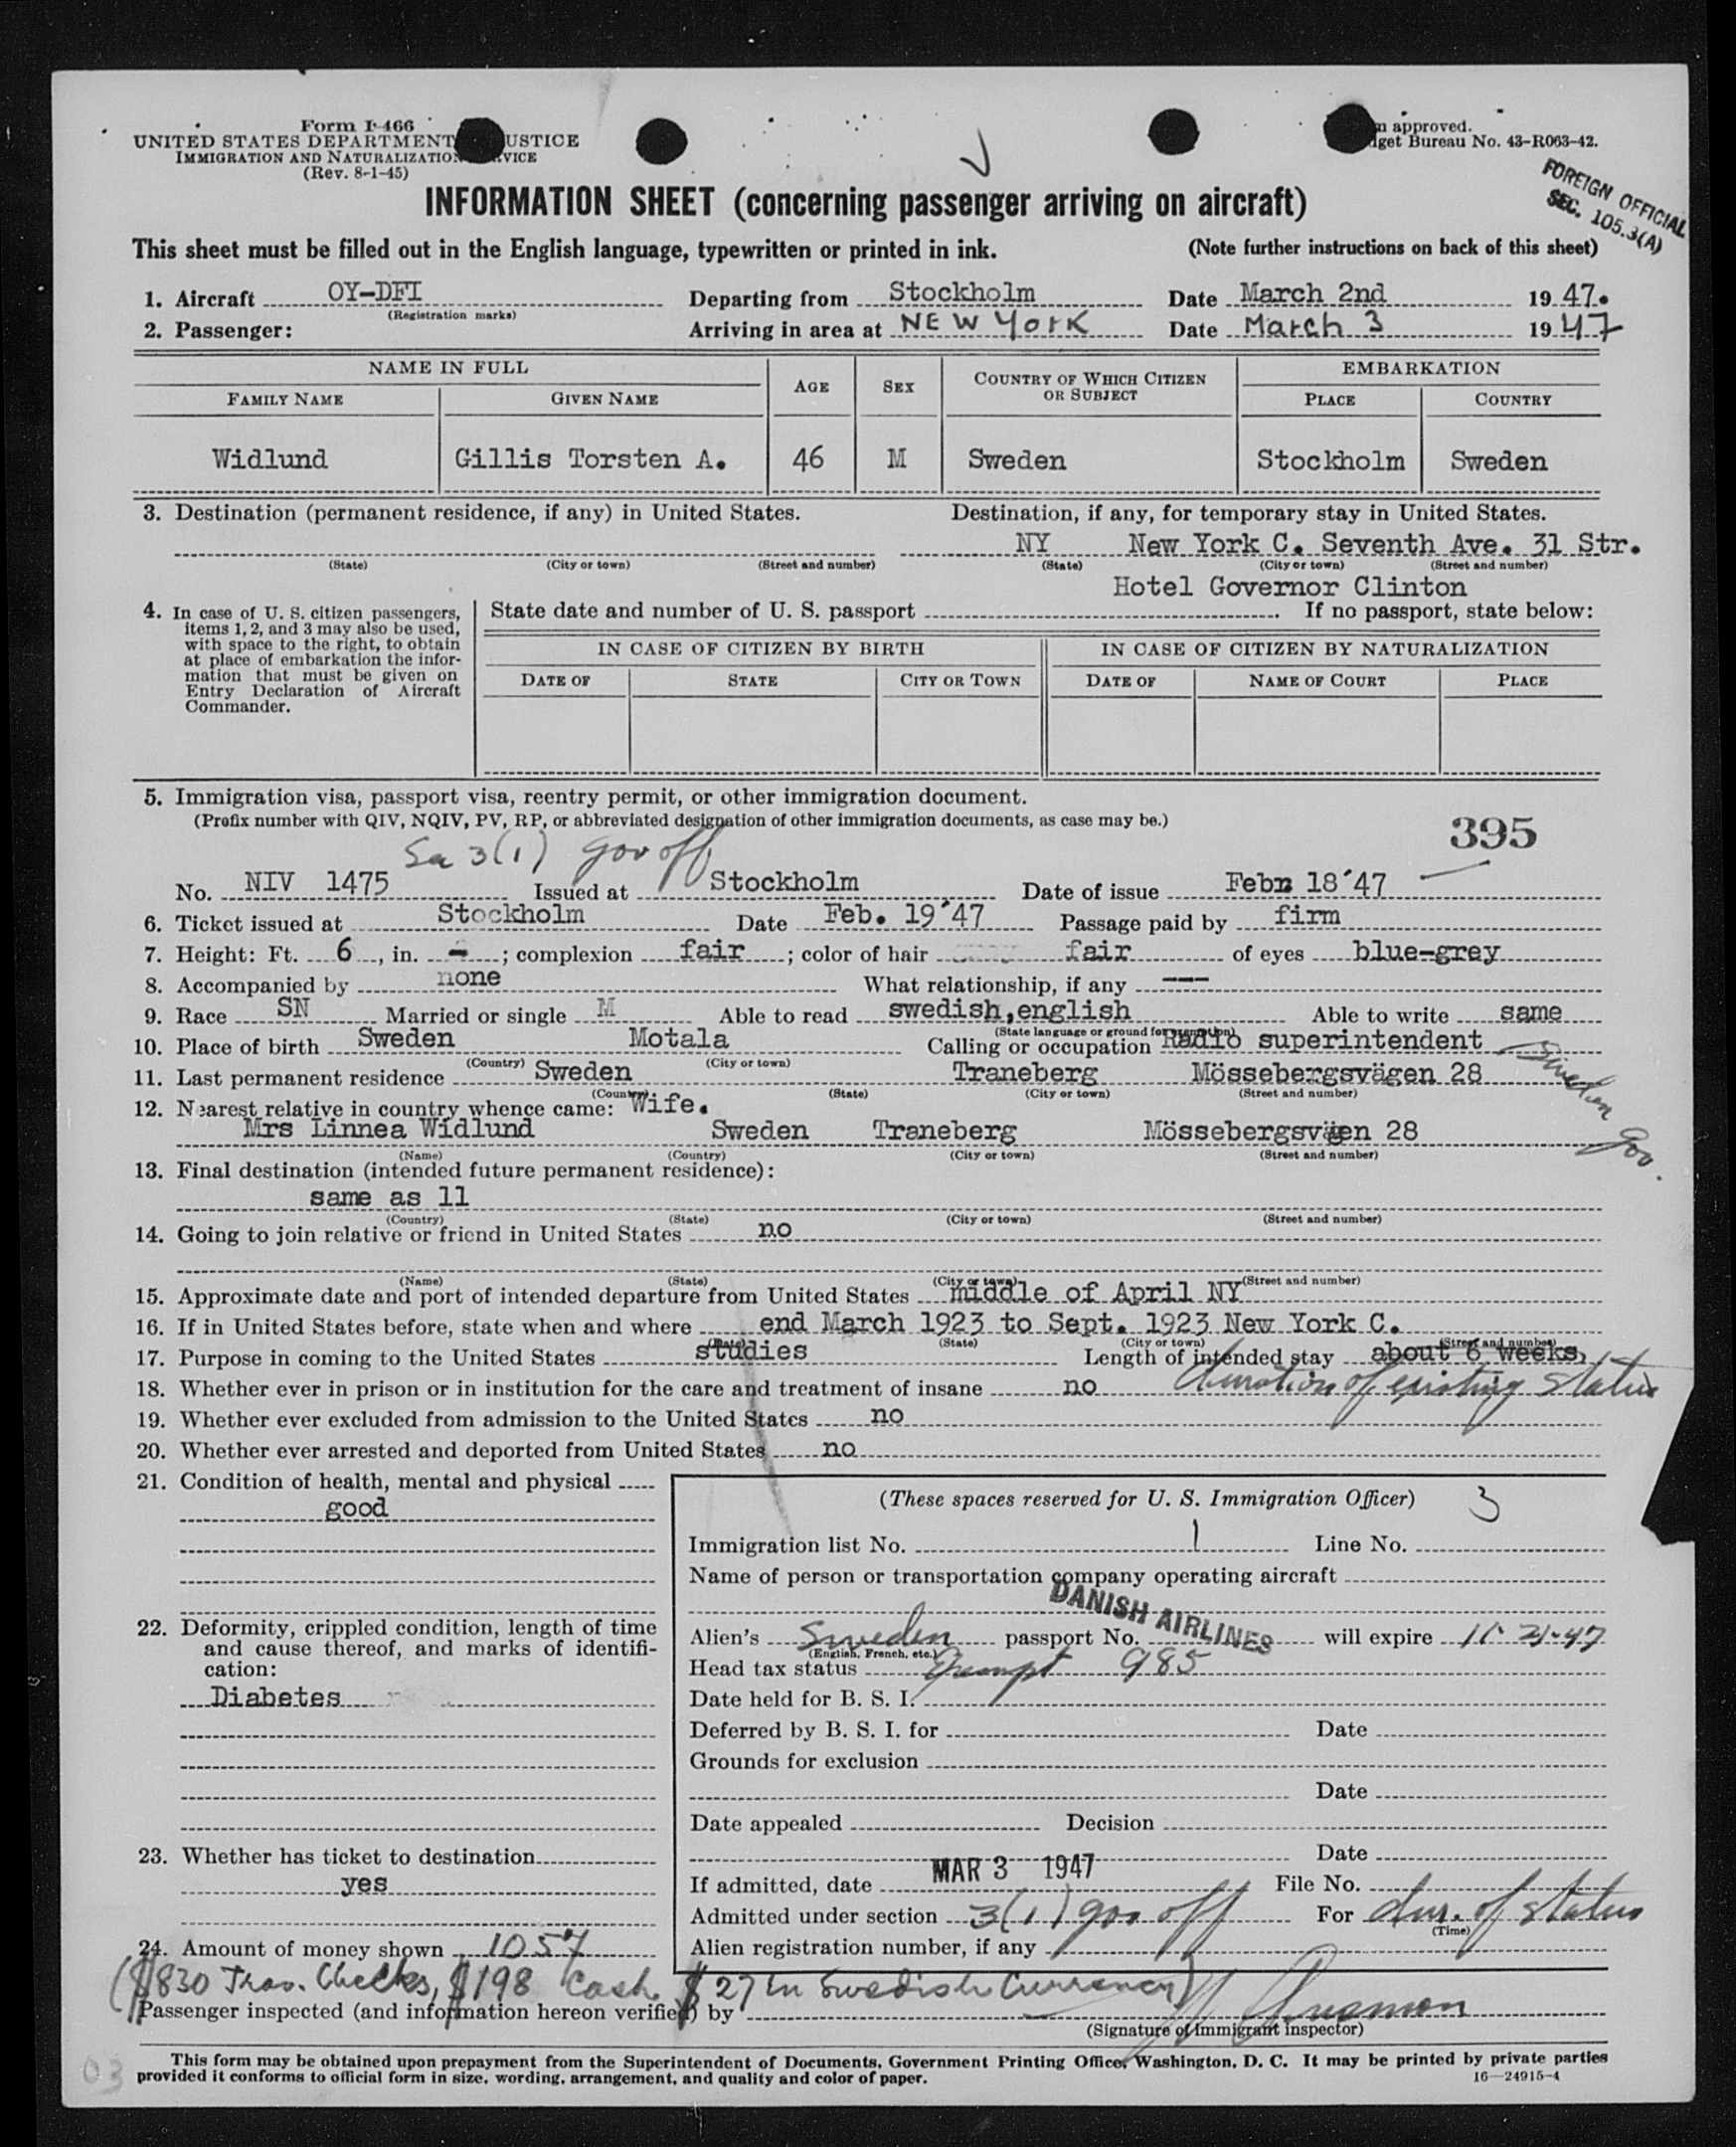 Form I-466
UNITED STATES DEPARTMENT USTICE
IMMIGRATION AND NATURALIZATION VICE
(Rev. 8-1-45)
n approved.
dget Bureau No. 43-R063-42.
FOREIGN OFFICIAL
SEC. 105.3(A)
INFORMATION SHEET (concerning passenger arriving on aircraft)
This sheet must be filled out in the English language, typewritten or printed in ink. (Note further instructions on back of this sheet)
1. Aircraft OY-DFI Departing from Stockholm Date March 2nd 1947.
(Registration marks)
2. Passenger: Arriving in area at NEW YORK Date March 3 1947
NAME IN FULL AGE SEX COUNTRY OF WHICH CITIZEN OR SUBJECT EMBARKATION
FAMILY NAME GIVEN NAME PLACE COUNTRY
Widlund Gillis Torsten A. 46 M Sweden Stockholm Sweden
3. Destination (permanent residence, if any) in United States. Destination, if any, for temporary stay in United States.
NY New York C. Seventh Ave. 31 Str.
(State) (City or town) (Street and number) (State) (City or town) (Street and number)
Hotel Governor Clinton
4. In case of U. S. citizen passengers, items 1, 2, and 3 may also be used, with space to the right, to obtain at place of embarkation the information that must be given on Entry Declaration of Aircraft Commander.
State date and number of U. S. passport . If no passport, state below:
IN CASE OF CITIZEN BY BIRTH IN CASE OF CITIZEN BY NATURALIZATION
DATE OF STATE CITY OR TOWN DATE OF NAME OF COURT PLACE
5. Immigration visa, passport visa, reentry permit, or other immigration document.
(Prefix number with QIV, NQIV, PV, RP, or abbreviated designation of other immigration documents, as case may be.)
395
3(1) gov off
No. NIV 1475 Issued at Stockholm Date of issue Febr 18'47
6. Ticket issued at Stockholm Date Feb. 19'47 Passage paid by firm
7. Height: Ft. 6, in. - ; complexion fair ; color of hair fair of eyes blue-grey
8. Accompanied by none What relationship, if any ---
9. Race SN Married or single M Able to read swedish,english Able to write same
(State language or ground for exemption)
10. Place of birth Sweden Motala Calling or occupation Radio superintendent
(Country) (City or town)
Sweden gov.
11. Last permanent residence Sweden Traneberg Mössebergsvägen 28
(Country) (State) (City or town) (Street and number)
12. Nearest relative in country whence came: Wife.
Mrs Linnea Widlund Sweden Traneberg Mössebergsvägen 28
(Name) (Country) (City or town) (Street and number)
13. Final destination (intended future permanent residence):
same as 11
(Country) (State) (City or town) (Street and number)
14. Going to join relative or friend in United States no
(Name) (State) (City or town) (Street and number)
15. Approximate date and port of intended departure from United States middle of April NY
16. If in United States before, state when and where end March 1923 to Sept. 1923 New York C.
(Date) (State) (City or town) (Street and number)
17. Purpose in coming to the United States studies Length of intended stay about 6 weeks,
duration of existing status
18. Whether ever in prison or in institution for the care and treatment of insane no
19. Whether ever excluded from admission to the United States no
20. Whether ever arrested and deported from United States no
21. Condition of health, mental and physical
good
22. Deformity, crippled condition, length of time and cause thereof, and marks of identification:
Diabetes
23. Whether has ticket to destination
yes
24. Amount of money shown 1057
($830 Trav. Checks, $198 Cash. $27 in Swedish Currency)
(These spaces reserved for U. S. Immigration Officer) 3
Immigration list No. 1 Line No.
Name of person or transportation company operating aircraft
DANISH AIRLINES
Alien's Sweden passport No. will expire 11-21-47
(English, French, etc.)
Head tax status Exempt 985
Date held for B. S. I.
Deferred by B. S. I. for Date
Grounds for exclusion
Date
Date appealed Decision
Date
If admitted, date MAR 3 1947 File No.
Admitted under section 3(1) gov off For dur. of status
(Time)
Alien registration number, if any
Passenger inspected (and information hereon verified) by
(Signature of immigrant inspector)
This form may be obtained upon prepayment from the Superintendent of Documents, Government Printing Office, Washington, D. C. It may be printed by private parties
provided it conforms to official form in size, wording, arrangement, and quality and color of paper. 16—24915-4
03